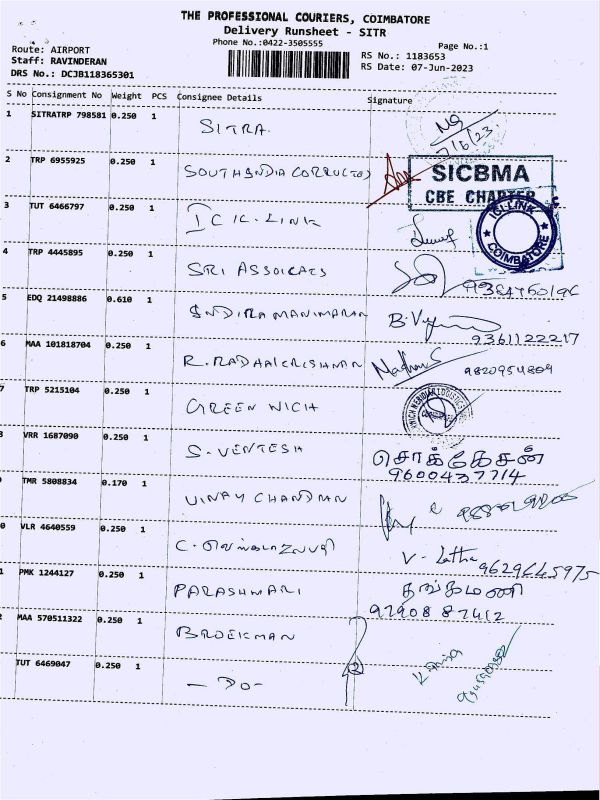 THE PROFESSIONAL COURIERS, COIMBATORE
Delivery Runsheet - SITR
Phone No.:0422-3505555
Page No.:1
Route: AIRPORT
RS No.: 1183653
Staff: RAVINDERAN
RS Date: 07-Jun-2023
DRS No.: DCJB118365301
S No Consignment No Weight PCS Consignee Details Signature
1 SITRATRP 798581 0.250 1 SITRA
7/6/23
2 TRP 6955925 0.250 1
SICBMA
CBE CHAPTER
3 TUT 6466797 0.250 1 ICIC-LINK
ICI-LINK
COIMBATORE
4 TRP 4445895 0.250 1 SRI
5 EDQ 21498886 0.610 1 INDIRAMANIMARAN
9361122217
6 MAA 101818704 0.250 1 R.RADHAKRISHNAN
7 TRP 5215104 0.250 1 GREEN WICH
VRR 1687090 0.250 1 S.VENTESH சொக்கேசன்
9600437714
TMR 5808834 0.170 1 VINAY CHANDRAN
0 VLR 4640559 0.250 1 V-Latha
1 PMK 1244127 0.250 1 PARASHMARI தங்கமணி
97908 87412
2 MAA 570511322 0.250 1 BROEKMAN
TUT 6469047 0.250 1 - DO -